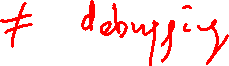 ≠ debugging